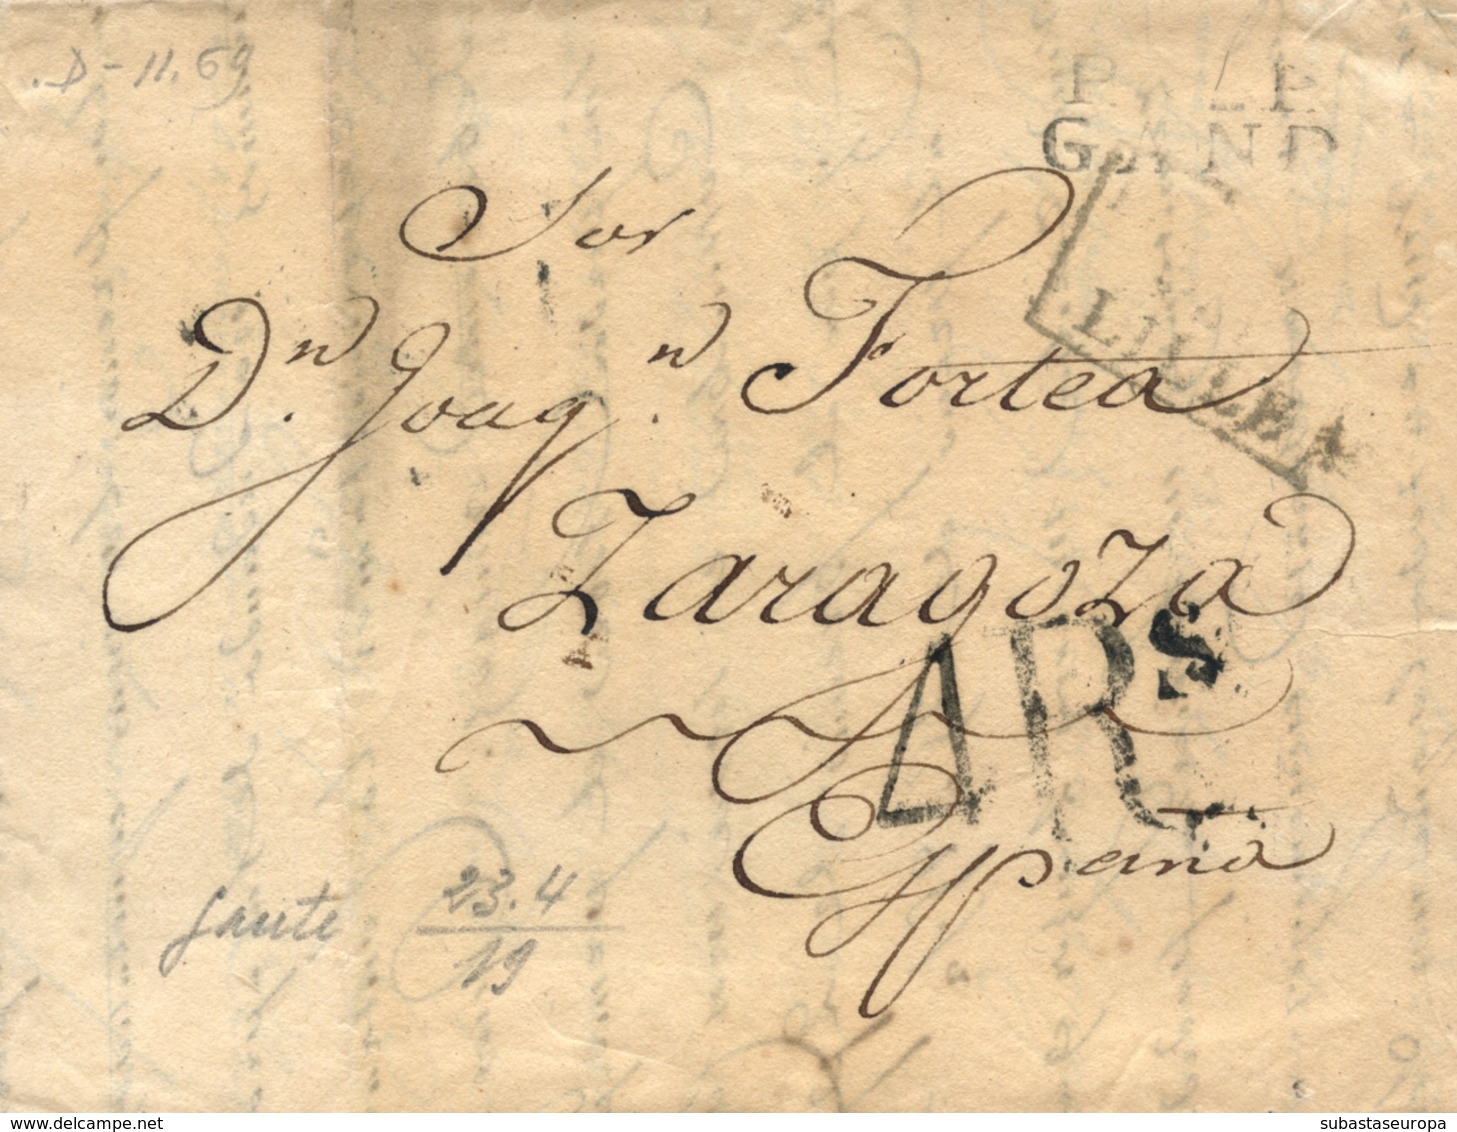 D-11.69
P.P.P.
GAND
Sor
Dn. Joaqn. Fortea
LILLE
Zaragoza
4 Rs
España
Gante 23.4
19
www.delcampe.net
subastaseuropa